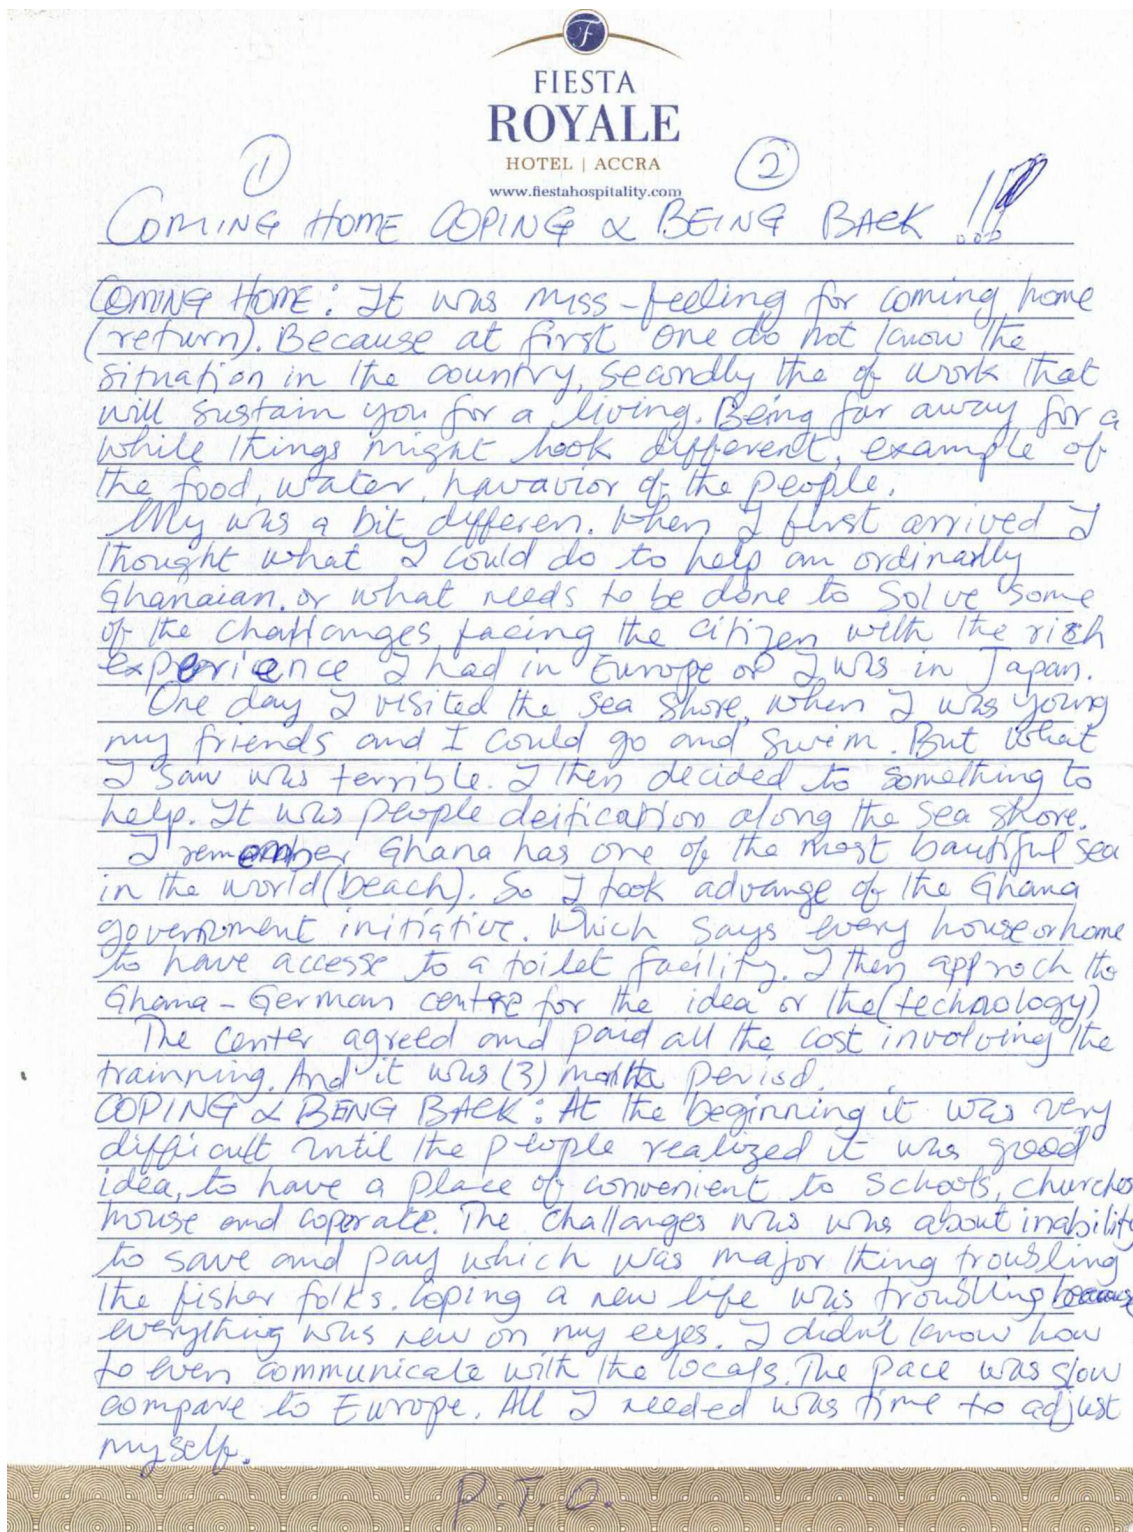 F
FIESTA
ROYALE
HOTEL | ACCRA
www.fiestahospitality.com
1 2
COMING HOME COPING & BEING BACK !!!
COMING HOME: It was miss-feeling for coming home
(return). Because at first one do not know the
situation in the country, secondly the of work that
will sustain you for a living. Being far away for a
while things might look different, example of
the food, water, havavior of the people.
My was a bit differen. When I first arrived I
thought what I could do to help an ordinarlly
Ghanaian. or what needs to be done to solve some
of the challanges facing the citizen with the rich
experience I had in Europe or I was in Japan.
One day I visited the sea shore, when I was young
my friends and I could go and swim. But what
I saw was terrible. I then decided to something to
help. It was people deification along the sea shore.
I remember Ghana has one of the most bautiful sea
in the world (beach). So I took advange of the Ghana
government initiative. Which says every house or home
to have accesse to a toilet facility. I then approch the
Ghana - German centre for the idea or the (technology)
The center agreed and paid all the cost involving the
trainning. And it was (3) months period.
COPING & BENG BACK: At the beginning it was very
difficult until the people realized it was good
idea, to have a place of convenient to schools, churches
house and coporate. The challanges was was about inability
to save and pay which was major thing troubling
the fisher folks. Coping a new life was troubling because
everything was new on my eyes. I didn't know how
to even communicate with the locals. The pace was slow
compare to Europe. All I needed was time to adjust
myself.
P.T.O.